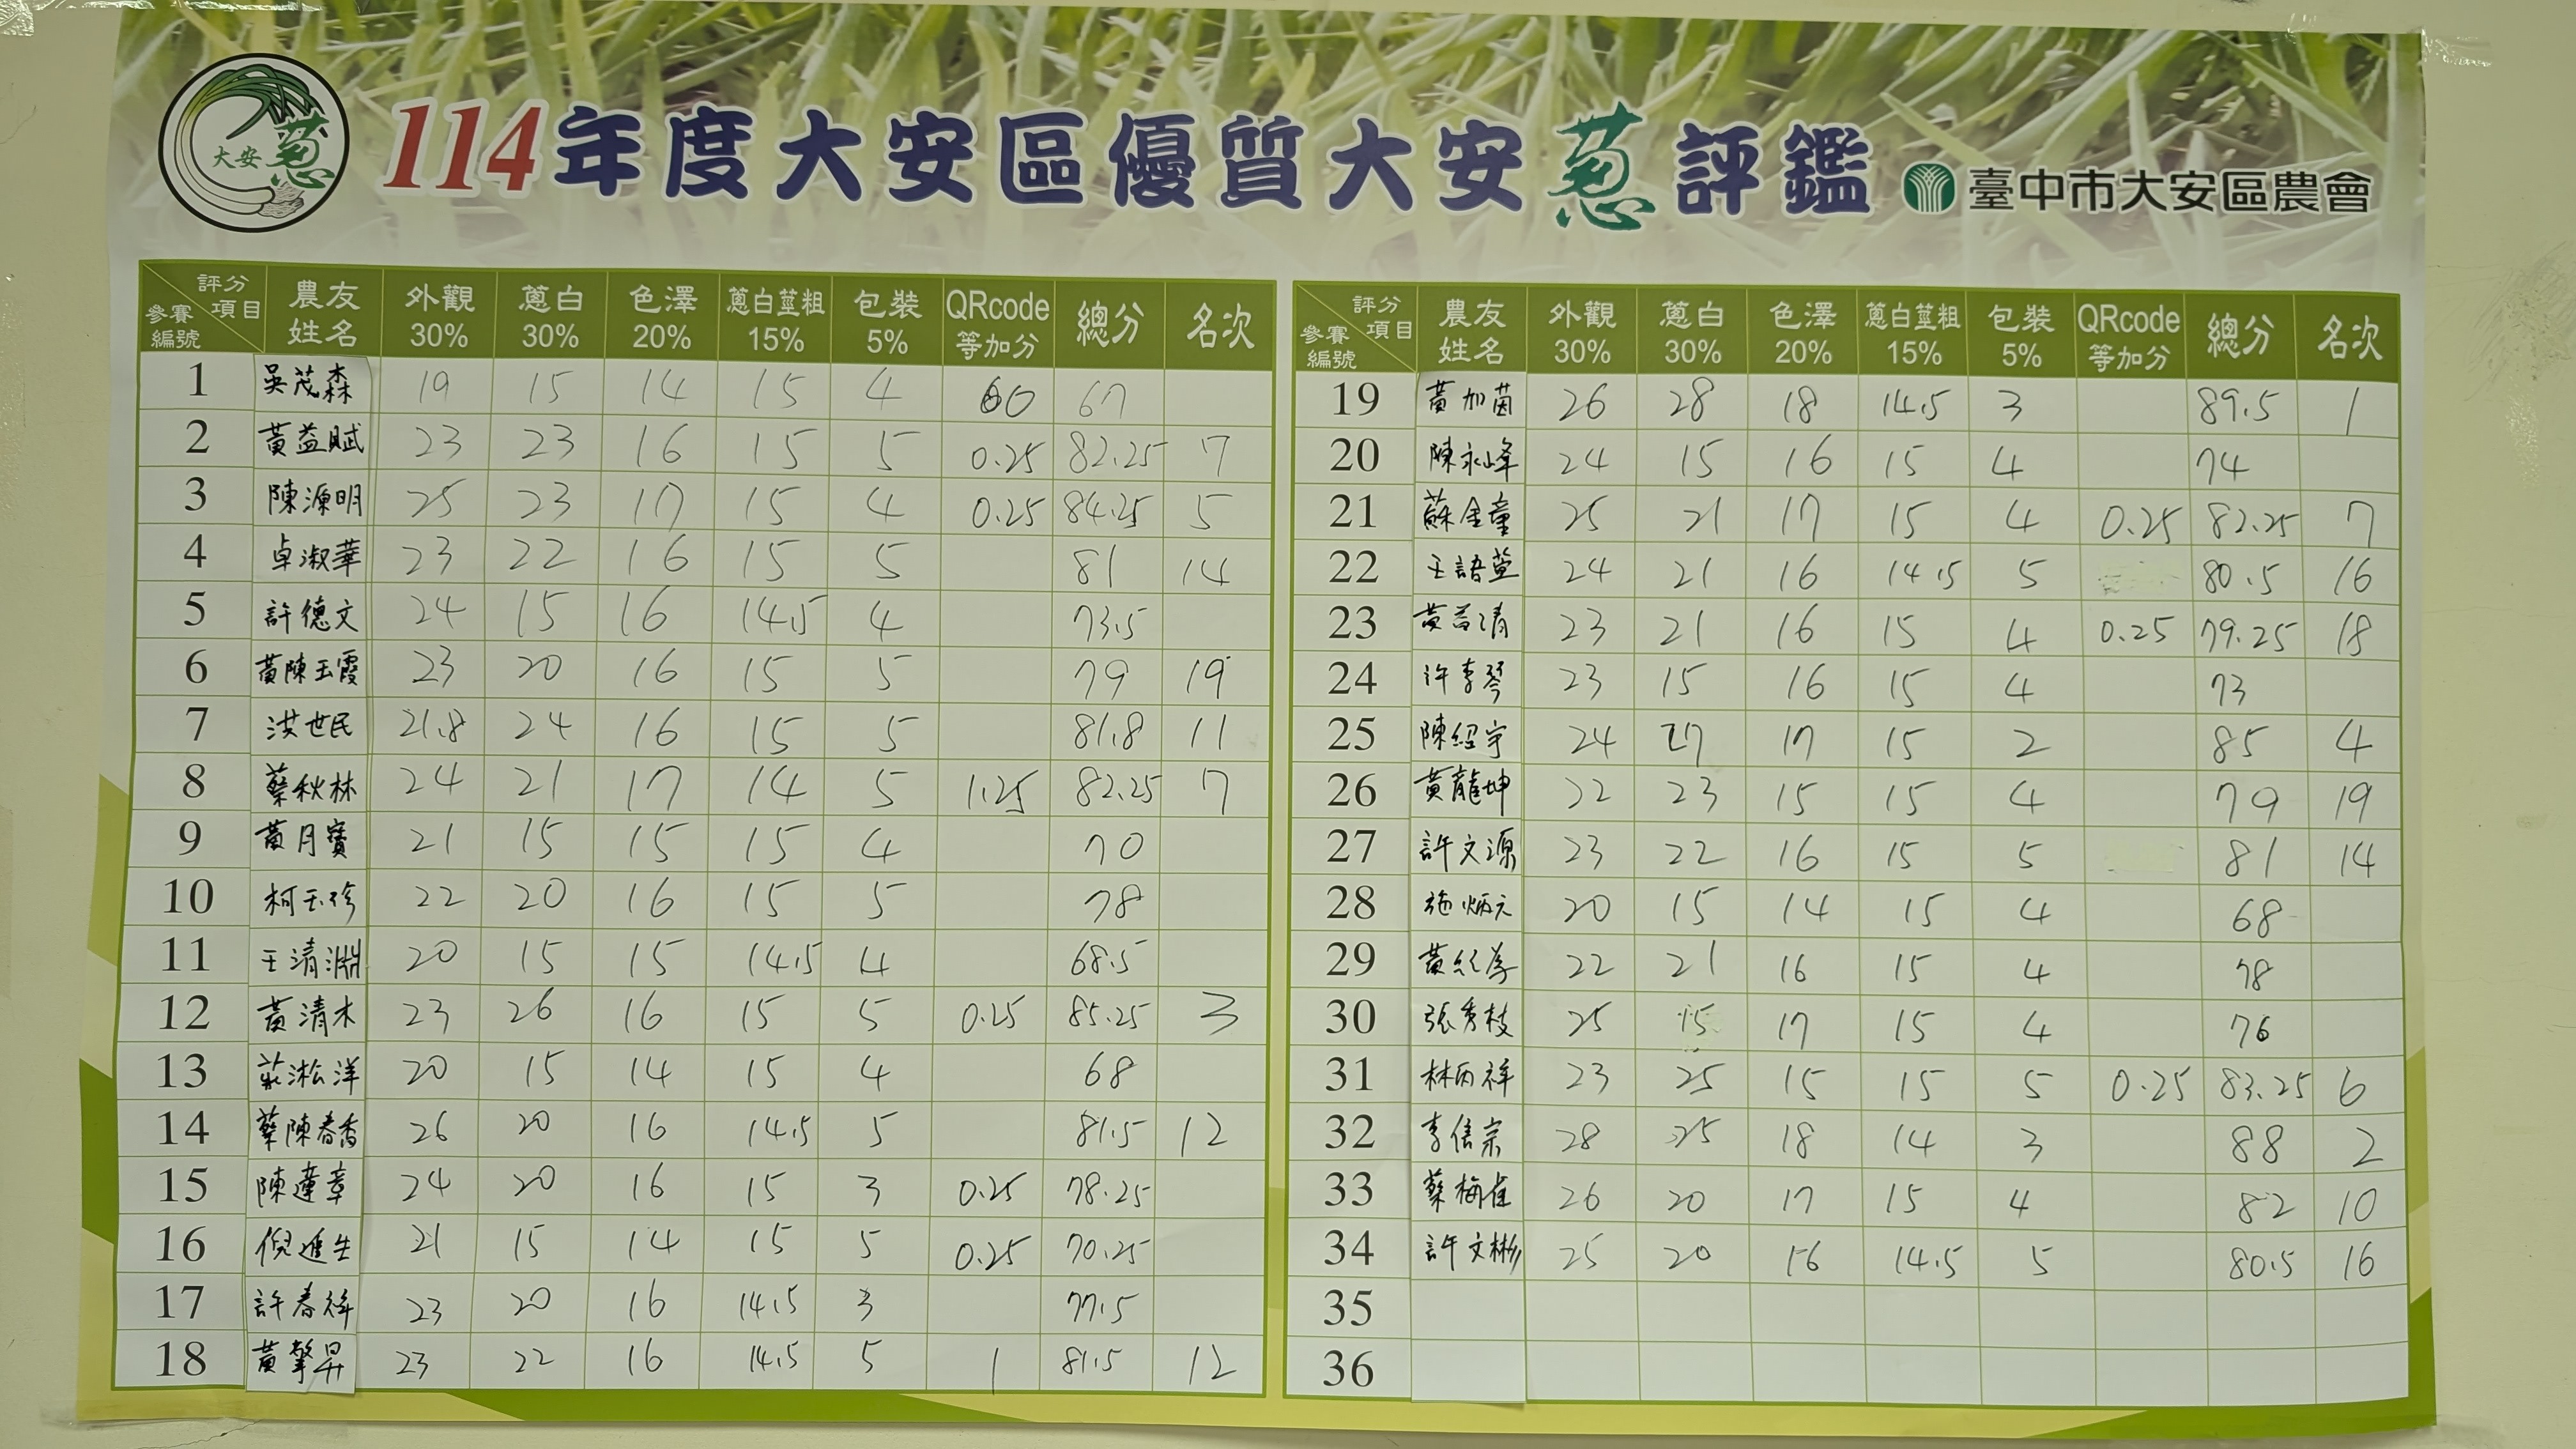 大安蔥
114年度大安區優質大安蔥評鑑 臺中市大安區農會
評分項目 參賽編號 農友姓名 外觀30% 蔥白30% 色澤20% 蔥白莖粗15% 包裝5% QRcode等加分 總分 名次
1 吳茂森 19 15 14 15 4 67
2 黃益賦 23 23 16 15 5 0.25 82.25 7
3 陳源明 25 23 17 15 4 0.25 84.25 5
4 卓淑華 23 22 16 15 5 81 14
5 許德文 24 15 16 14.5 4 73.5
6 黃陳玉霞 23 20 16 15 5 79 19
7 洪世民 21.8 24 16 15 5 81.8 11
8 蔡秋林 24 21 17 14 5 1.25 82.25 7
9 黃月寶 21 15 15 15 4 70
10 柯玉珍 22 20 16 15 5 78
11 王清淵 20 15 15 14.5 4 68.5
12 黃清木 23 26 16 15 5 0.25 85.25 3
13 莊淞洋 20 15 14 15 4 68
14 蔡陳春香 26 20 16 14.5 5 81.5 12
15 陳達章 24 20 16 15 3 0.25 78.25
16 倪進生 21 15 14 15 5 0.25 70.25
17 許春祥 23 20 16 14.5 3 77.5
18 黃擎昇 23 22 16 14.5 5 1 81.5 12
評分項目 參賽編號 農友姓名 外觀30% 蔥白30% 色澤20% 蔥白莖粗15% 包裝5% QRcode等加分 總分 名次
19 黃加茵 26 28 18 14.5 3 89.5 1
20 陳永峰 24 15 16 15 4 74
21 蘇金童 25 21 17 15 4 0.25 82.25 7
22 王語萱 24 21 16 14.5 5 80.5 16
23 黃益清 23 21 16 15 4 0.25 79.25 18
24 許李琴 23 15 16 15 4 73
25 陳紹宇 24 27 17 15 2 85 4
26 黃龍坤 22 23 15 15 4 79 19
27 許文源 23 22 16 15 5 81 14
28 施炳元 20 15 14 15 4 68
29 黃 22 21 16 15 4 78
30 張秀枝 25 15 17 15 4 76
31 林丙祥 23 25 15 15 5 0.25 83.25 6
32 李信宗 28 25 18 14 3 88 2
33 蔡梅雀 26 20 17 15 4 82 10
34 許文彬 25 20 16 14.5 5 80.5 16
35
36